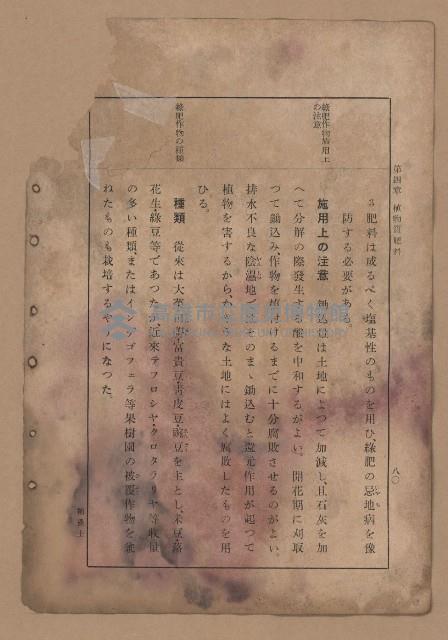 第四章 植物質肥料
八〇
3 肥料は成るべく鹽基性のものを用ひ綠肥の忌地病を豫
防する必要がある。
綠肥作物施用上
の注意
施用上の注意 鋤込量は土地によつて加減し、且石灰を加
へて分解の際發生する酸を中和するがよい。 開花期に刈取
つて鋤込み、作物を植付けるまでに十分腐敗させるのがよい。
排水不良な陰濕地にそのまゝ鋤込むと還元作用が起つて
植物を害するから、かやうな土地にはよく腐敗したものを用
ひる。
綠肥作物の種類
種類 從來は大菜 富貴豆、靑皮豆、豌豆を主とし、米豆、落
花生、綠豆等であつたが、近來テフロシヤ、クロタラリヤ等收量
の多い種類、またはインヂゴフェラ等果樹園の被覆作物を兼
ねたものも栽培するやうになつた。
高雄市立歷史博物館